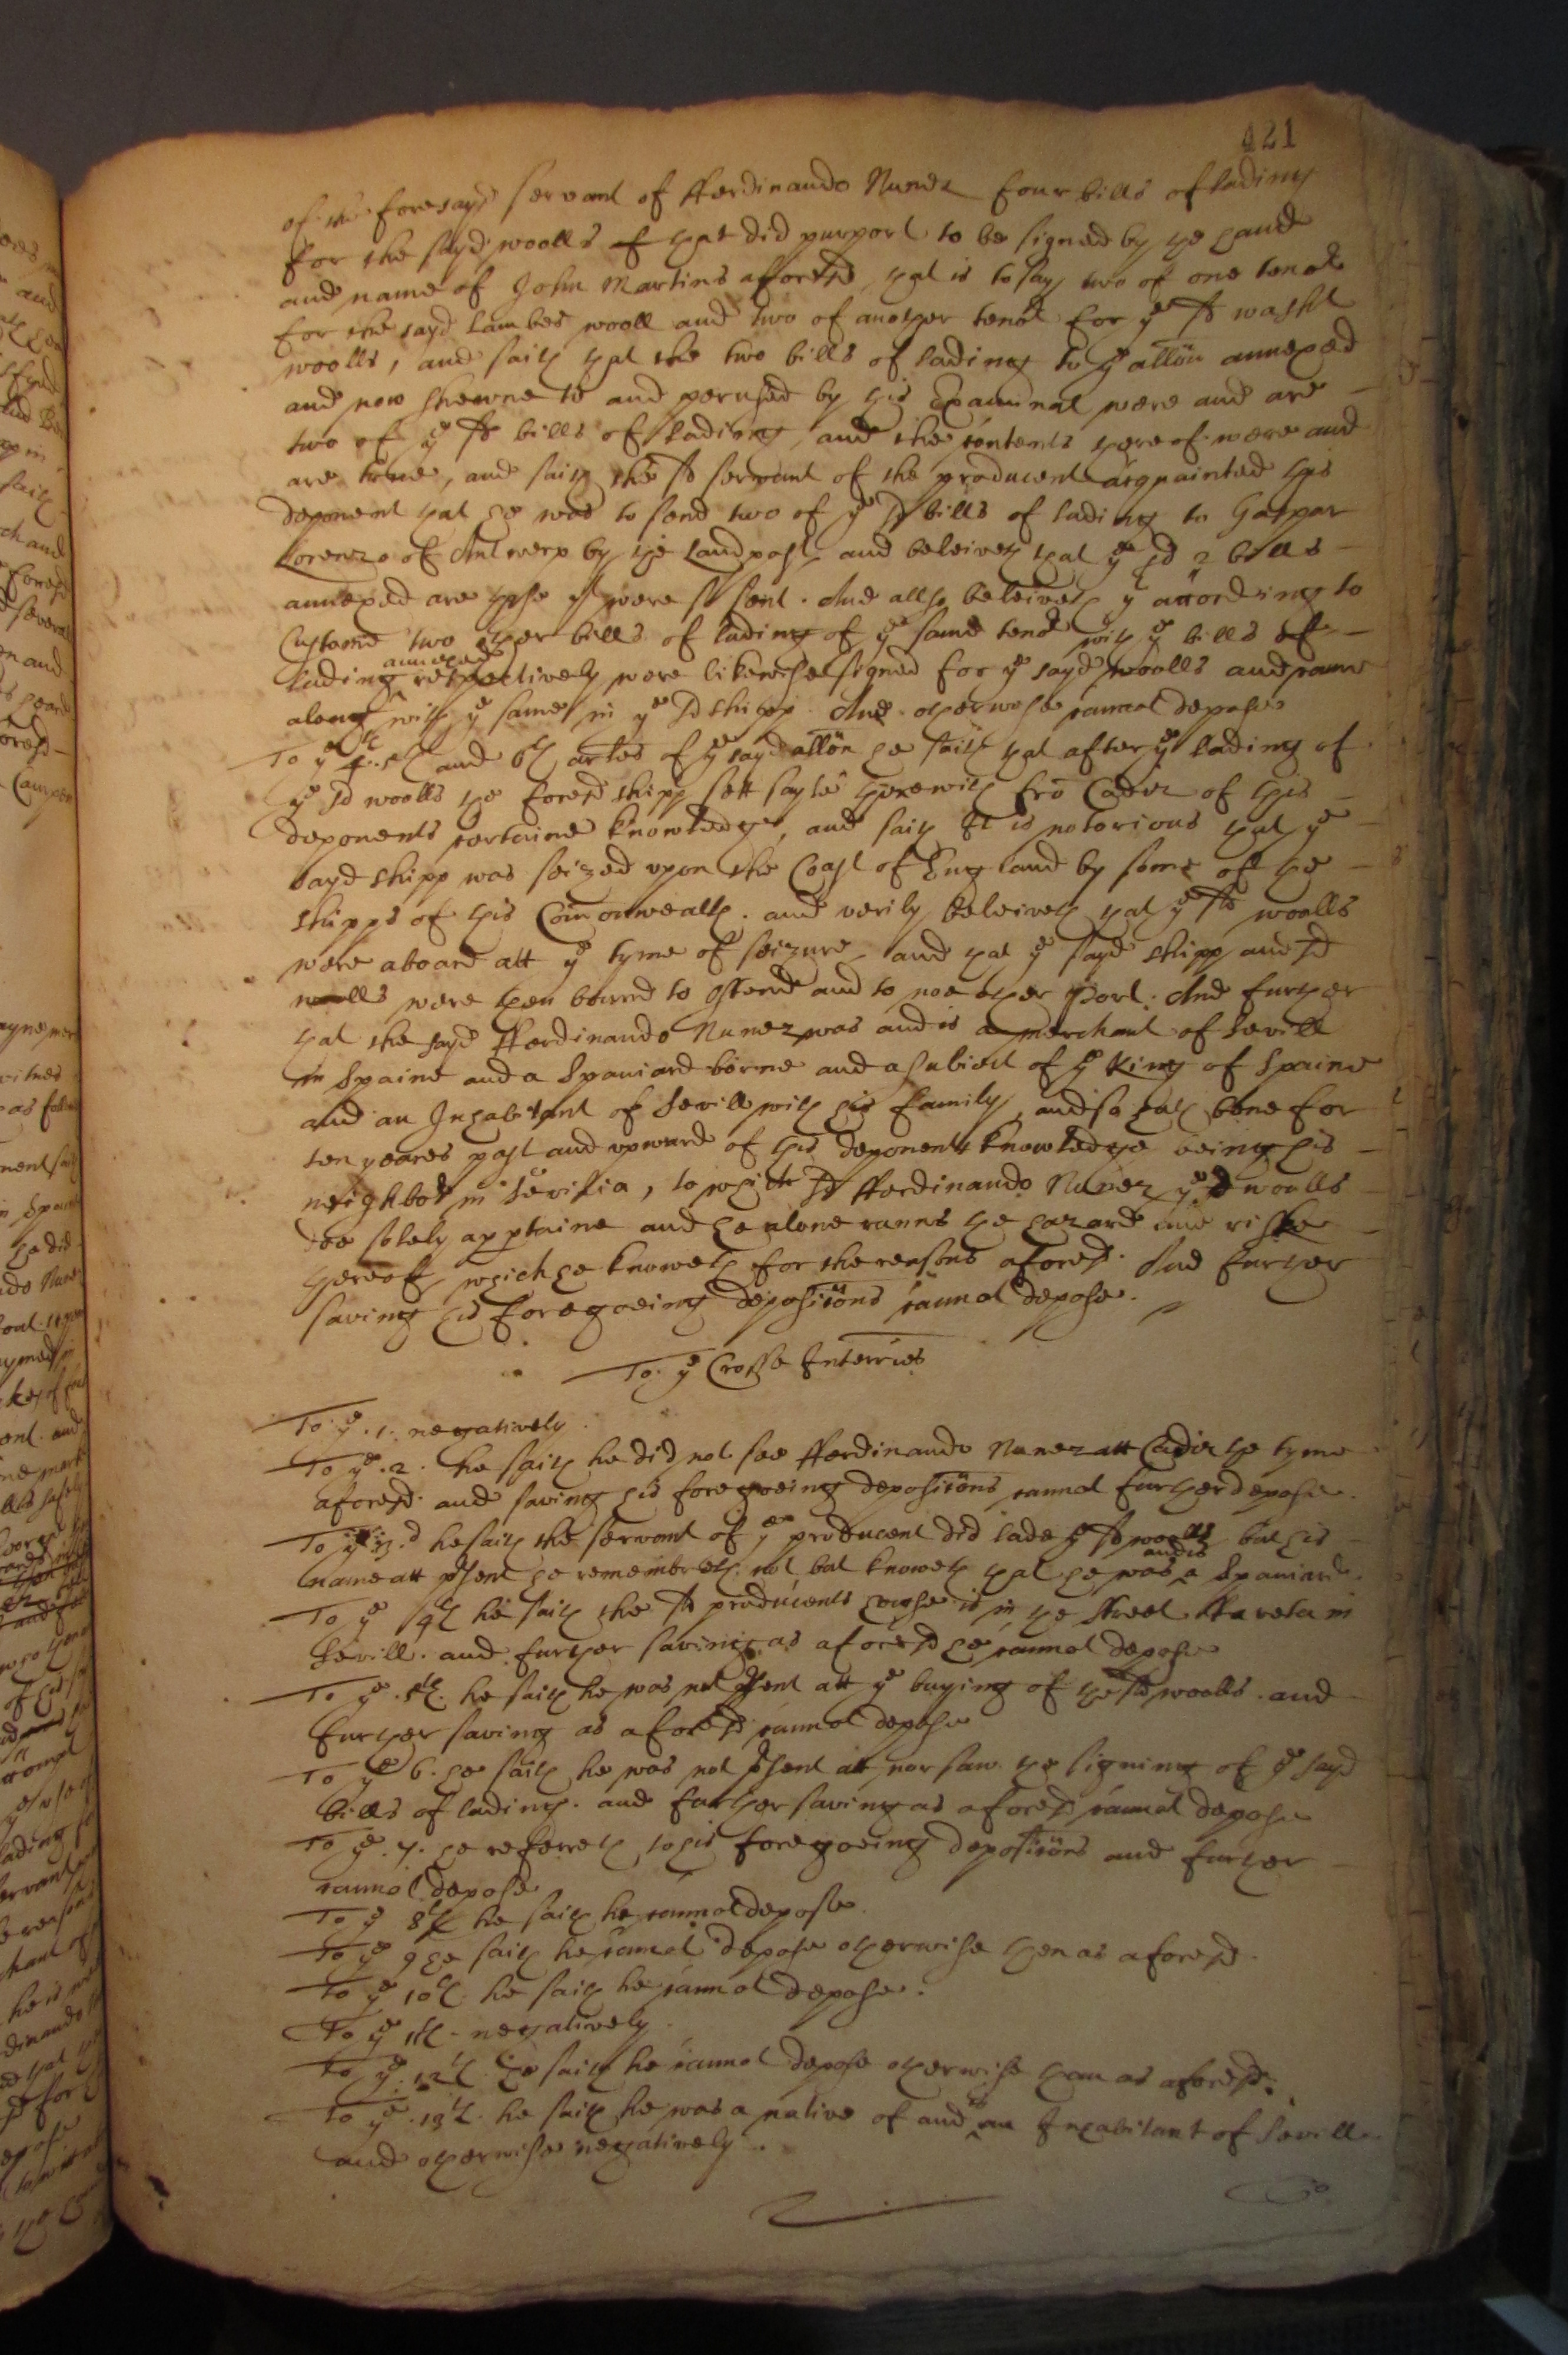 421
of the foresayd servant of fferdinando Nunez four bills of lading
for the sayd woolls that did purport to be signed by the hand
and name of John Martins aforesd, that is to say two of one tenor
for the sayd lambes wooll and two of another tenor for ye sd washt
woolls, and saith that the two bills of lading to ye allon annexed
and now shewne to and perused by this Examinat were and are
two of ye sd bills of lading, and the contents thereof were and
are true, and saith the sd servant of the producent acquainted this
deponent that he was to send two of ye sd bills of lading to Gaspar
Lorenzo of Antwerp by the land post, and beleiveth that ye sd 2 bills
annexed are those yt were so sent. And allso beleiveth yt according to
Custome two other bills of lading of ye same tenor with ye bills of
lading annexed respectively were likewise signed for ye sayd woolls and came
along with ye same in ye sd shipp. And otherwise cannot depose
To ye 4. 5th and 6th artles of ye sayd allon he saith that after ye lading of
ye sd woolls the foresd shipp sett sayle therewith fro Cadiz of this
deponents certaine knowledge, and saith It is notorious that ye
sayd shipp was seized upon the Coast of England by some of the
shipps of this Comonwealth. and verily beleiveth that ye sd woolls
were aboard att ye tyme of seizure, and that ye sayd shipp and sd
woolls were then bound to Ostend and to noe other Port. And further
that the sayd fferdinando Nunez was and is a merchant of Sevill
in Spaine and a Spaniard borne and a subiect of ye King of Spaine
and an Inhabitant of Sevill with his family, and so hath bene for
ten yeares past and upward of this deponents knowledge being his
neighbor in Sevilia, to which sd fferdinando Nunez ye sd woolls
doe solely appertaine and he alone runns the hazard and riske
thereof, which he knoweth for the reasons aforesd. And further
saving his foregoeing depositions cannot depose.
To ye Crosse Interries
To ye .1. negatively.
To ye .2. he saith he did not see fferdinando Nunez att Cadiz the tyme
aforesd. and saving his foregoeing depositions cannot further depose.
To ye 3.d he saith the servant of ye producent did lade ye sd woolls but his
name att psent he remembreth not but knoweth that he was and is a Spaniard.
To ye 4th he saith the sd producents house is in the street in
Sevill. and further saving as aforesd he cannot depose
To ye .5th. he saith he was not psent att ye buying of the sd woolls. and
further saving as aforesd cannot depose
To ye 6. he saith he was not psent att nor saw the signing of ye sayd
bills of lading. and further saving as aforesd cannot depose
To ye .7. he referreth to his foregoeing depositions and further
cannot depose
To ye 8th he saith he cannot depose.
To ye 9 he saith he cannot depose otherwise then as aforesd.
To ye 10th. he saith he cannot depose.
To ye 11th - negatively.
To ye .12th. he saith he cannot depose otherwise than as aforesd.
To ye .13th. he saith he was a native of and is an Inhabitant of Sevill
and otherwise negatively.